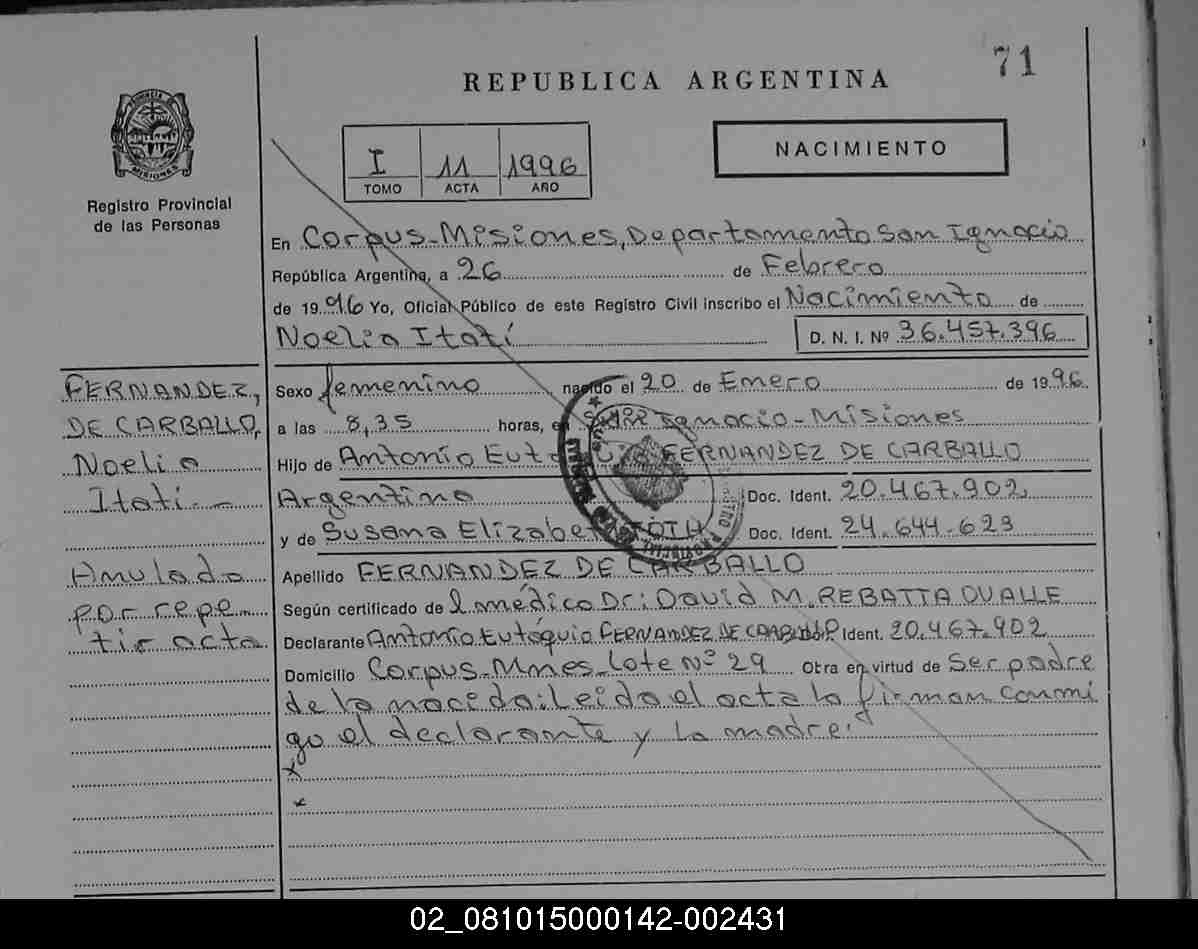 71
REPUBLICA ARGENTINA
PROVINCIA
MISIONES
Registro Provincial
de las Personas
I 11 1996
TOMO ACTA AÑO
NACIMIENTO
En Corpus-Misiones, Departamento San Ignacio
República Argentina, a 26 de Febrero
de 1996 Yo, Oficial Público de este Registro Civil inscribo el Nacimiento de
Noelia Itatí D. N. I. Nº 36.457.396
FERNANDEZ,
DE CARBALLO,
Noelia
Itatí.-
Anulado
por repe
tir acta
Sexo femenino nacido el 20 de Enero de 1996.
a las 8,35 horas, en San Ignacio-Misiones
Hijo de Antonio FERNANDEZ DE CARBALLO
Argentino Doc. Ident. 20.467.902
y de Susana Elizabeth TOTH Doc. Ident. 24.644-623
Apellido FERNANDEZ DE CARBALLO
Según certificado del médico Dr: David M. REBATTA OVALLE
Declarante Antonio Eutóquio FERNANDEZ DE CARBALLO Ident. 20.467.902
Domicilio Corpus-Mnes-Lote Nº 29 Otra en virtud de Ser padre
de la nacida: Leida el acta la firman conmi
go el declarante y la madre.
x
x
02_081015000142-002431